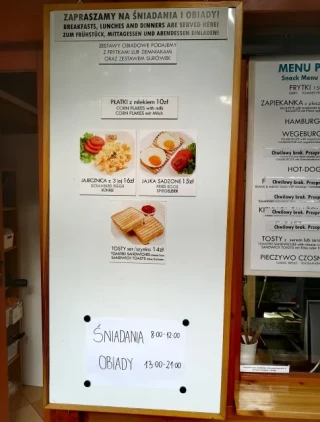 ZAPRASZAMY NA ŚNIADANIA I OBIADY!
BREAKFASTS, LUNCHES AND DINNERS ARE SERVED HERE!
ZUM FRÜHSTÜCK, MITTAGESSEN UND ABENDESSEN EINLADEN!
ZESTAWY OBIADOWE PODAJEMY
Z FRYTKAMI LUB ZIEMNIAKAMI
ORAZ ZESTAWEM SURÓWEK
PŁATKI z mlekiem 10zł
CORN FLAKES with milk
CORN FLAKES mit Milch
JAJECZNICA z 3 jaj 16zł
SCRAMBLED EGGS
RÜHREI
JAJKA SADZONE 15zł
FRIED EGGS
SPIEGELEIER
TOSTY ser/szynka 14zł
TOASTED SANDWICHES
SANDWICH TOASTS
ŚNIADANIA 8:00-12:00
OBIADY 13:00-21:00
MENU P
Snack Menu
FRYTKI
ZAPIEKANKA z
HAMBURG
WEGEBUR
Chwilowy brak. Przepr
HOT-DO
Chwilowy brak. Przepr
Chwilowy brak. Przepr
Chwilowy brak. Przepr
TOSTY z serem lub
PIECZYWO CZOSN